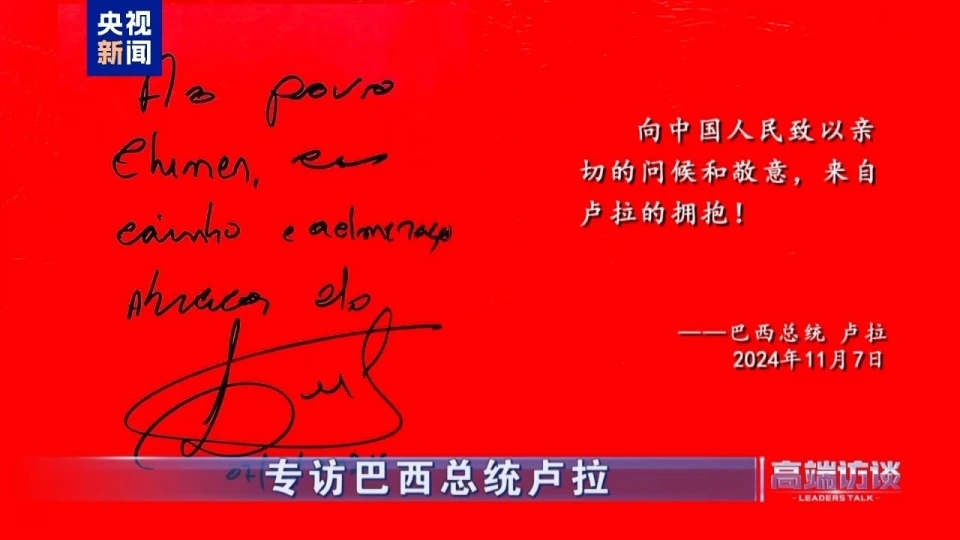 央视
新闻
Ao povo
carinho e admiração
Abraços do
向中国人民致以亲
切的问候和敬意，来自
卢拉的拥抱！
——巴西总统 卢拉
2024年11月7日
专访巴西总统卢拉
高端访谈
LEADERS TALK